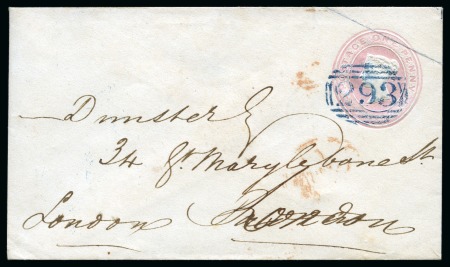 POSTAGE ONE PENNY
293
Dunster Esq
34 Gt Marylebone St.
London London